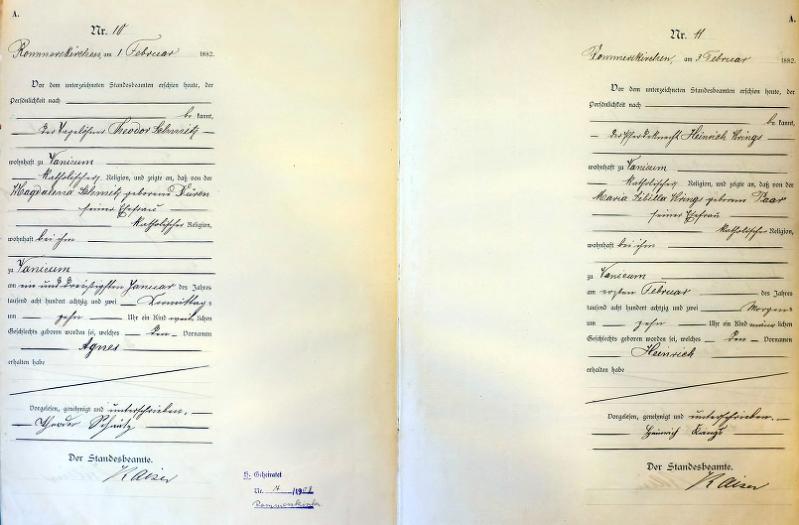 A.
Nr. 10
Rommerskirchen, am 1 Februar 1882.
Vor dem unterzeichneten Standesbeamten erschien heute, der
Persönlichkeit nach
be kannt,
der Tagelöhner Theodor Schmitz
wohnhaft zu Vanikum
katholischer Religion, und zeigte an, daß von der
Magdalena Schmitz geborene Düren
seiner Ehefrau
katholischer Religion,
wohnhaft bei ihm
zu Vanikum
am ein und dreißigsten Januar des Jahres
tausend acht hundert achtzig und zwei Vormittags
um zehn Uhr ein Kind weib lichen
Geschlechts geboren worden sei, welches den Vornamen
Agnes
erhalten habe
Vorgelesen, genehmigt und unterschrieben.
Theodor Schmitz
Der Standesbeamte.
Kaiser
H. Geheiratet
Nr. 14 /19
Rommerskirchen
A.
Nr. 11
Rommerskirchen, am 3 Februar 1882.
Vor dem unterzeichneten Standesbeamten erschien heute, der
Persönlichkeit nach
be kannt,
der Pferdeknecht Heinrich Krings
wohnhaft zu Vanikum
katholischer Religion, und zeigte an, daß von der
Maria Sibilla Krings geborene Paar
seiner Ehefrau
katholischer Religion,
wohnhaft bei ihm
zu Vanikum
am ersten Februar des Jahres
tausend acht hundert achtzig und zwei Morgens
um zehn Uhr ein Kind männ lichen
Geschlechts geboren worden sei, welches den Vornamen
Heinrich
erhalten habe
Vorgelesen, genehmigt und unterschrieben.
Heinrich Krings
Der Standesbeamte.
Kaiser